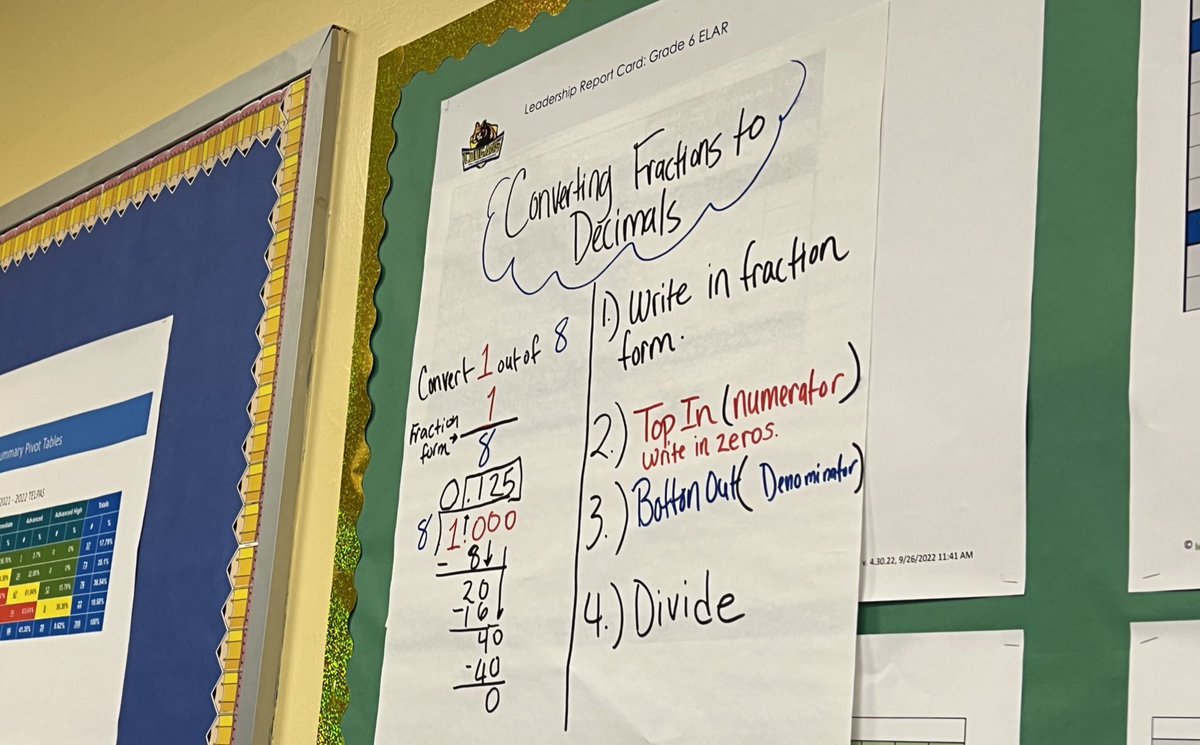 Leadership Report Card: Grade 6 ELAR
Converting Fractions to
Decimals
Convert 1 out of 8
Fraction
form →
1
8
0.125
8 1.000
- 8
20
-16
40
-40
0
1.) Write in fraction
form.
2.) Top In (numerator)
write in zeros.
3.) Bottom Out (Denominator)
4.) Divide
v. 4.30.22, 9/26/2022 11:41 AM
Summary Pivot Tables
2021 - 2022 TELPAS
Advanced
Advanced High
Totals